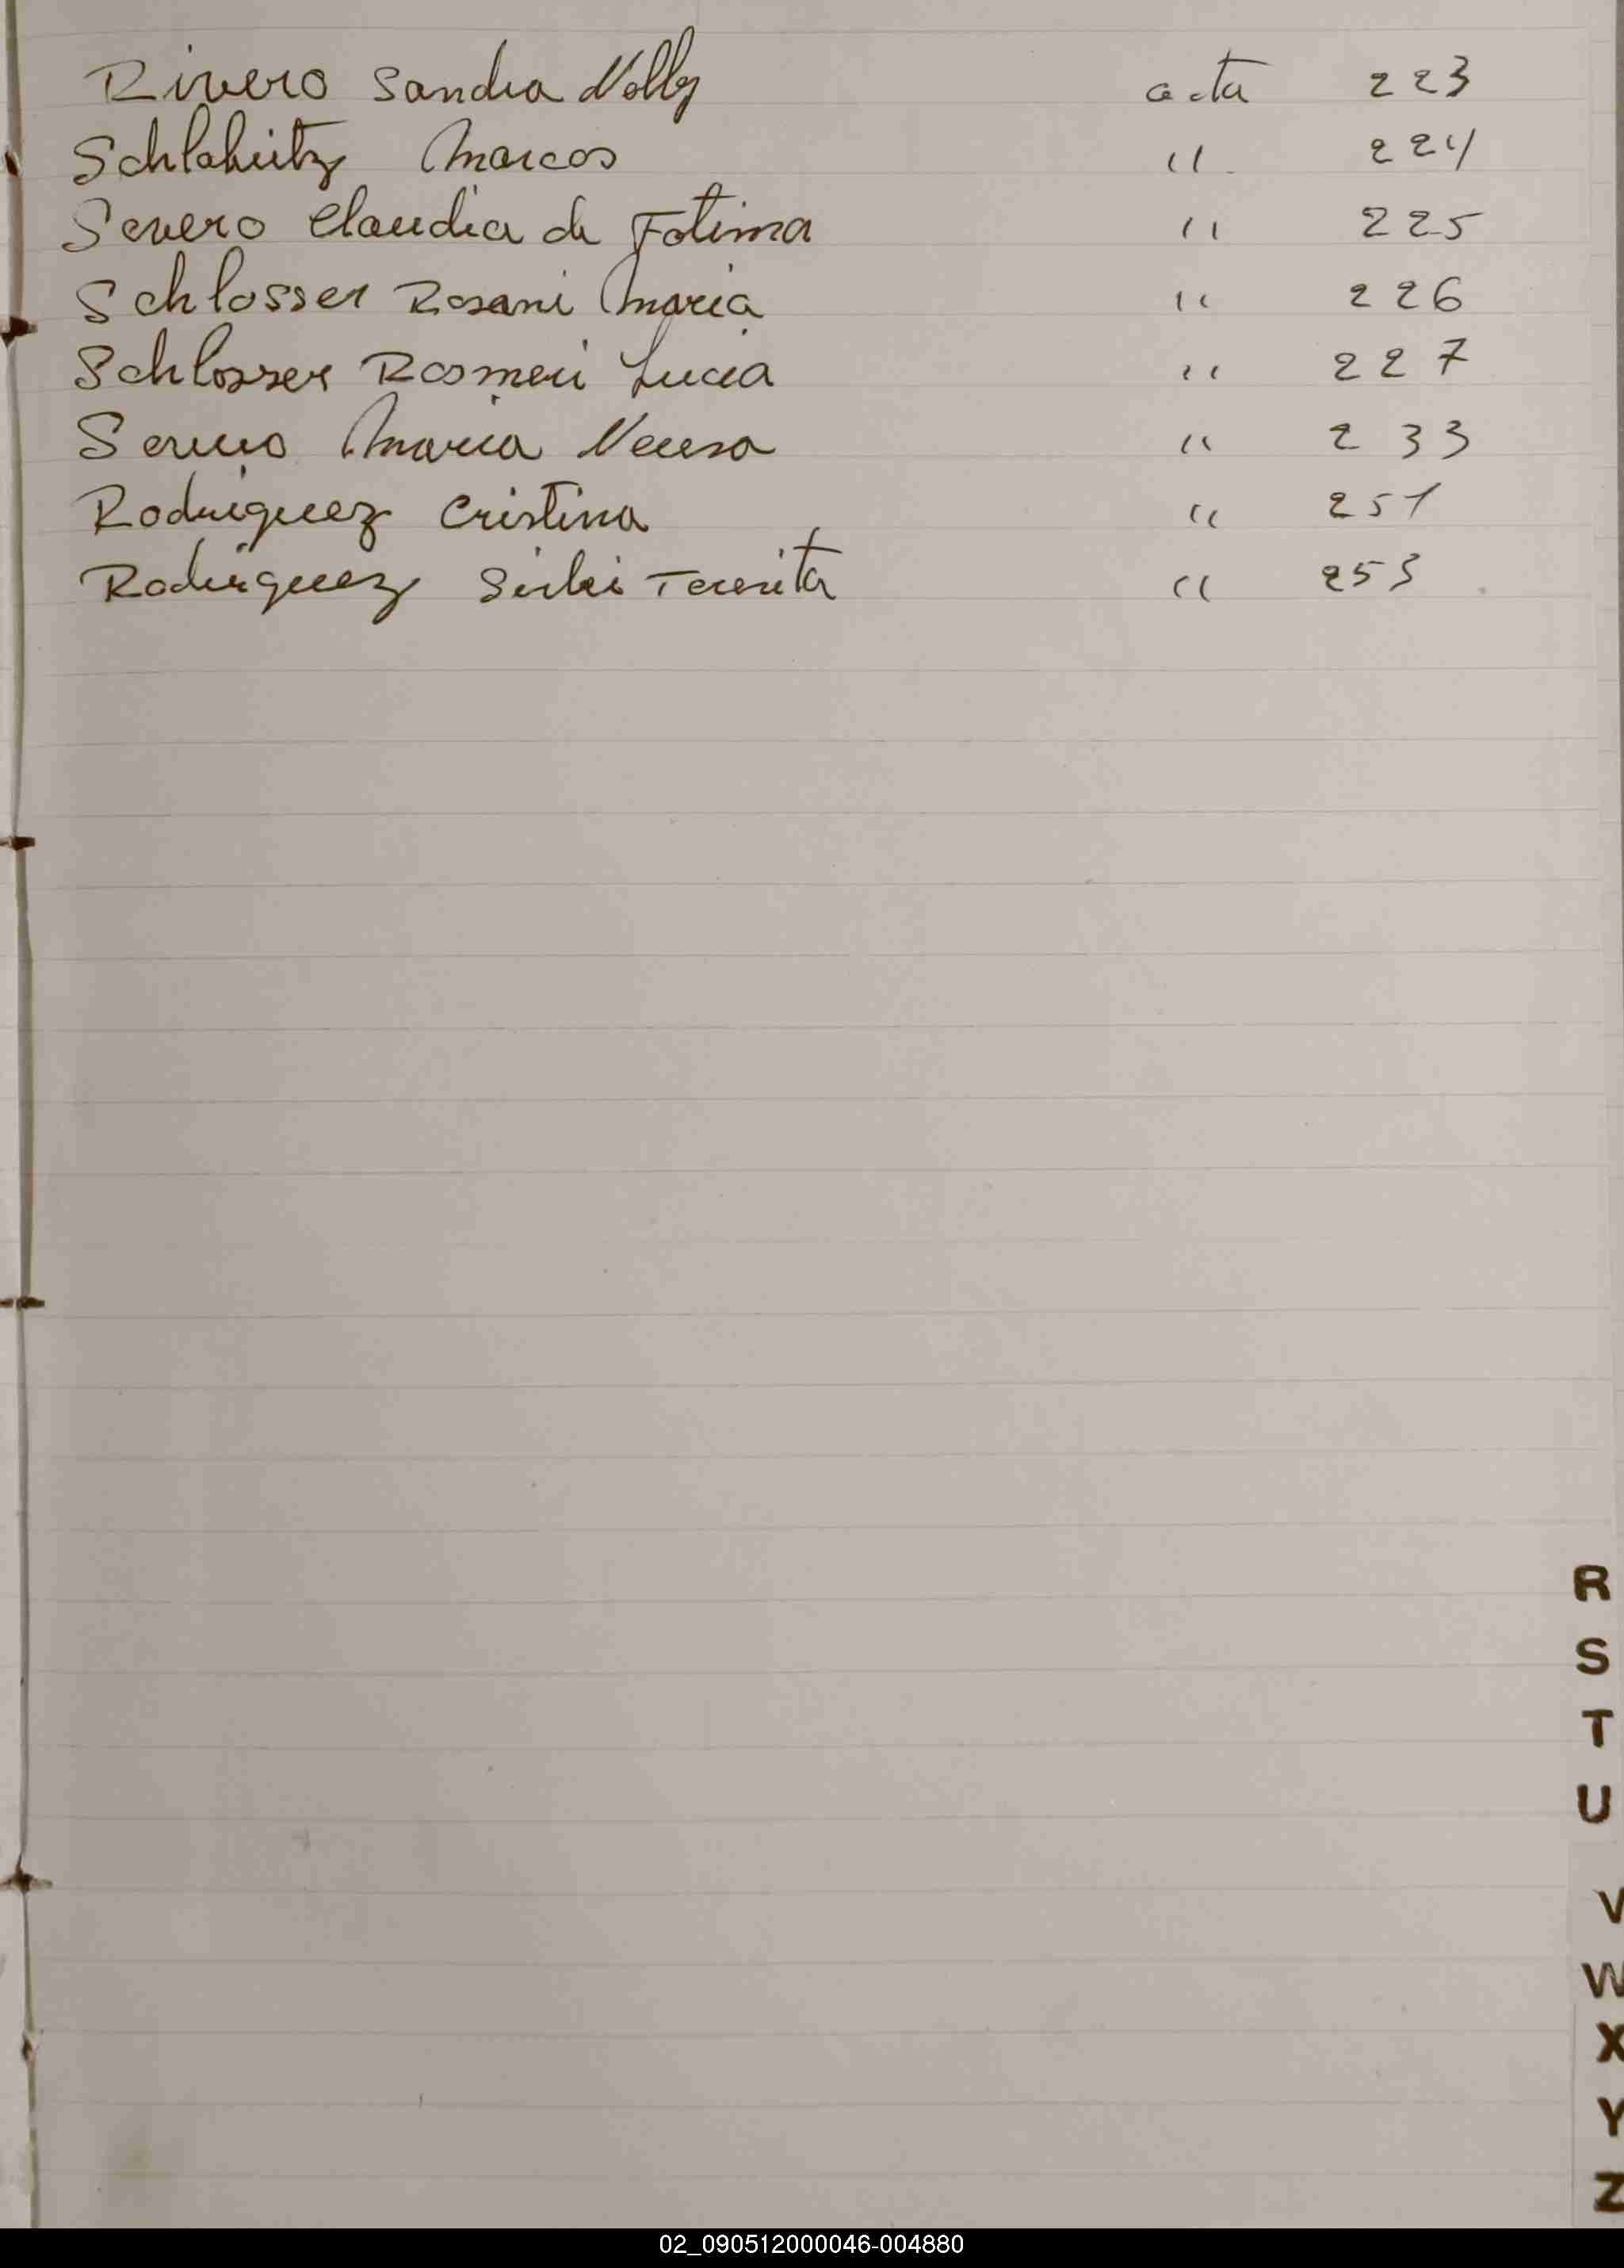 Rivero Sandra Nelly acta 223
Schlabitz Marcos " 224
Severo Claudia de Fatima " 225
Schlosser Rosani Maria " 226
Schlosser Rosmeri Lucia " 227
Maria Neusa " 233
Rodriguez Cristina " 251
Rodriguez Sirlei Teresita " 253
R
S
T
U
V
W
X
Y
Z
02_090512000046-004880